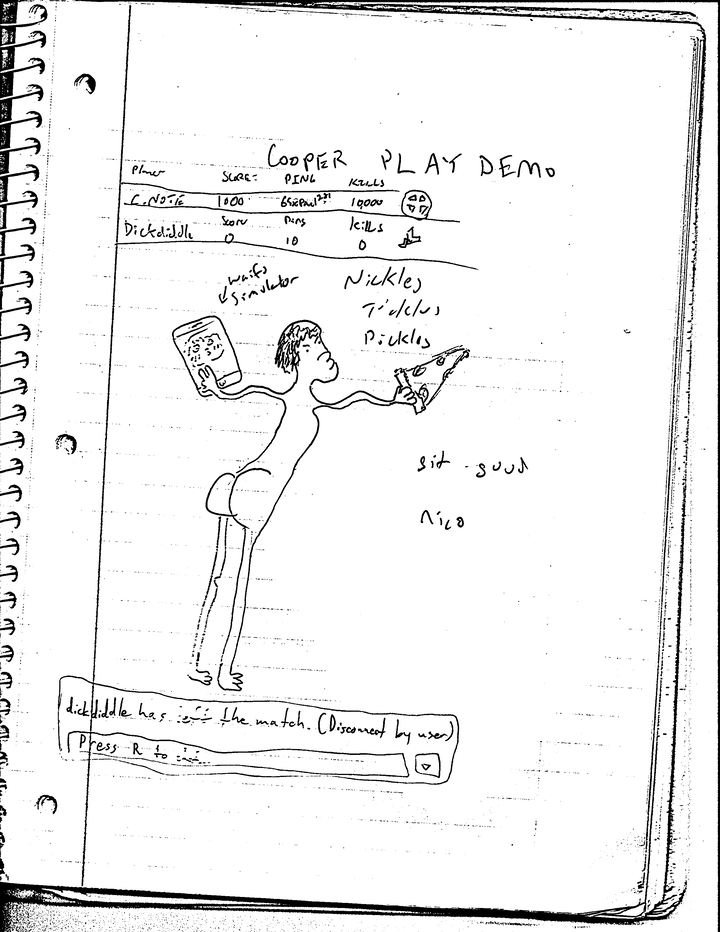 COOPER PLAY DEMO
Player SCORE: PING KILLS
C.NOTE 1000 10,000
Dickdiddle Score Ping kills
0 10 0
waifu
simulator
Nickles
Tickles
Pickles
git gud
nico
dickdiddle has left the match. (Disconnect by user)
Press R to